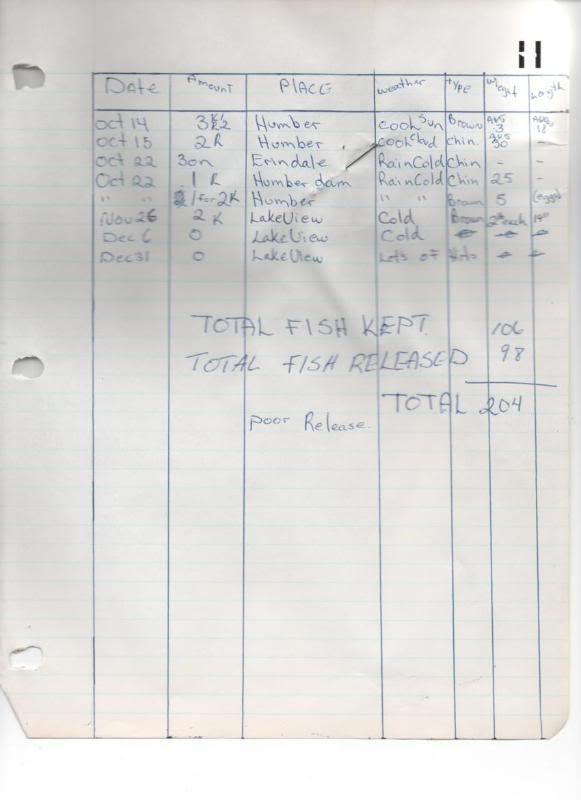 Date Amount PLACE weather type Weight Length
Oct 14 3 Humber Cool Sun Brown AVG 3 AVG 12
Oct 15 2R Humber Cool Cloud Chin. AVG 30 -
Oct 22 3on Erindale Rain Cold Chin - -
Oct 22 1 R Humber dam Rain Cold Chin 25 -
" " 1 for 2K Humber " " Brown 5 (eggs)
Nov 26 2 K LakeView Cold Brown 2 each
Dec 6 0 LakeView Cold
Dec 31 0 LakeView Lots of
TOTAL FISH KEPT 106
TOTAL FISH RELEASED 98
TOTAL 204
poor Release.